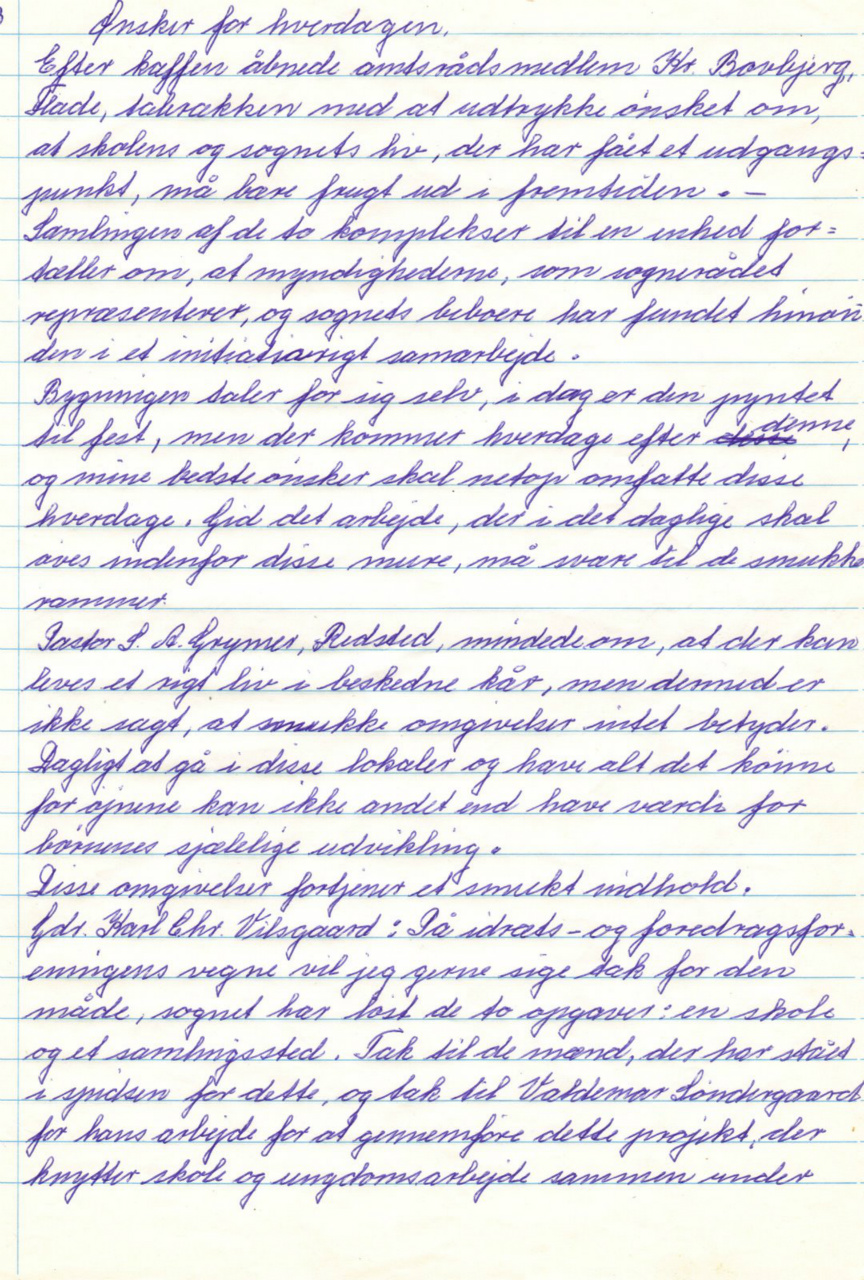 Ønsker for hverdagen.
Efter kaffen åbnede amtsrådsmedlem Kr. Bovbjerg,
Flade, talerækken med at udtrykke ønsket om,
at skolens og sognets liv, der har fået et udgangs=
punkt, må bære frugt ud i fremtiden. –
Samlingen af de to komplekser til en enhed for=
tæller om, at myndighederne, som sognerådet
repræsenterer, og sognets beboere har fundet hinan=
den i et initiativrigt samarbejde.
Bygningen taler for sig selv, i dag er den pyntet
til fest, men der kommer hverdage efter denne,
og mine bedste ønsker skal netop omfatte disse
hverdage. Gid det arbejde, der i det daglige skal
øves indenfor disse mure, må svare til de smukke
rammer.
Pastor S. A. Grymer, Redsted, mindede om, at der kan
leves et rigt liv i beskedne kår, men dermed er
ikke sagt, at smukke omgivelser intet betyder.
Dagligt at gå i disse lokaler og have alt det kønne
for øjnene kan ikke andet end have værdi for
børnenes sjælelige udvikling.
Disse omgivelser fortjener et smukt indhold.
Gdr. Karl Chr. Vilsgaard: På idræts- og foredragsfor=
eningens vegne vil jeg gerne sige tak for den
måde, sognet har løst de to opgaver: en skole
og et samlingssted. Tak til de mænd, der har stået
i spidsen for dette, og tak til Valdemar Søndergaard
for hans arbejde for at gennemføre dette projekt, der
knytter skole og ungdomsarbejde sammen under